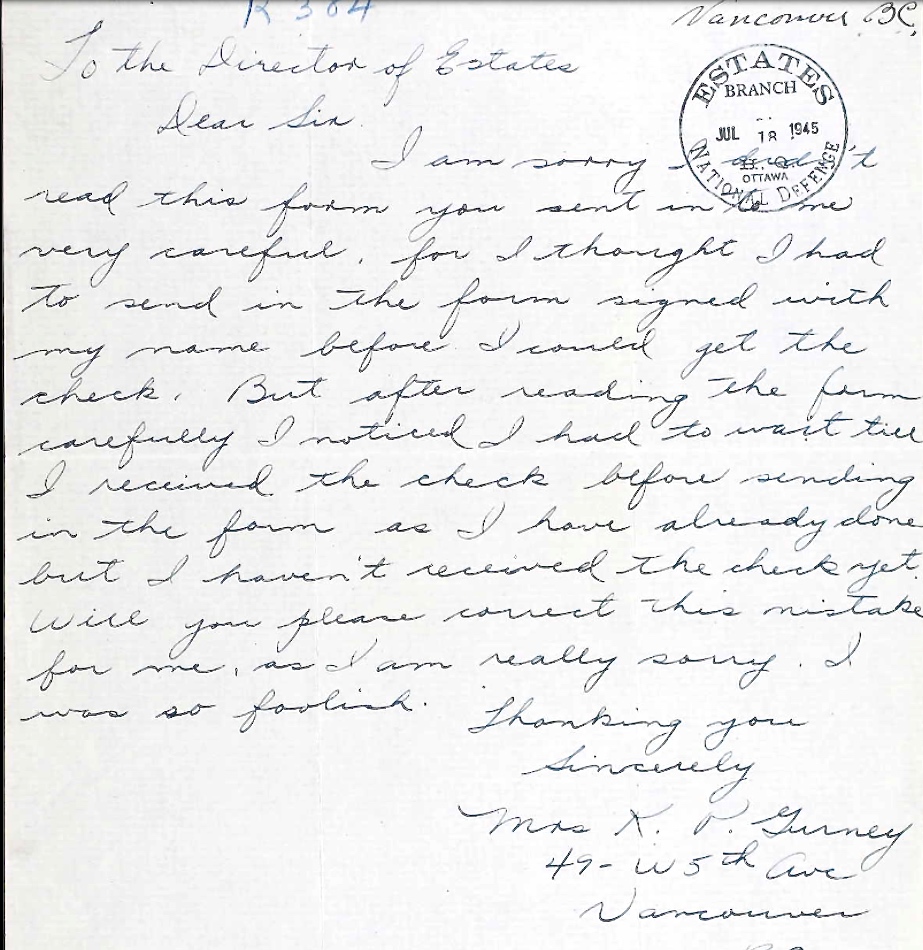 K 384
Vancouver BC,
To the Director of Estates
ESTATES
BRANCH
JUL 18 1945
H. Q.
OTTAWA
NATIONAL DEFENCE
Dear Sir
I am sorry I didn't
read this form you sent in to me
very careful, for I thought I had
to send in the form signed with
my name before I could get the
check. But after reading the form
carefully I noticed I had to wait till
I received the check before sending
in the form as I have already done
but I haven't received the check yet.
Will you please correct this mistake
for me, as I am really sorry. I
was so foolish.
Thanking you
Sincerely
Mrs K. P. Gurney
49 - W 5th Ave
Vancouver